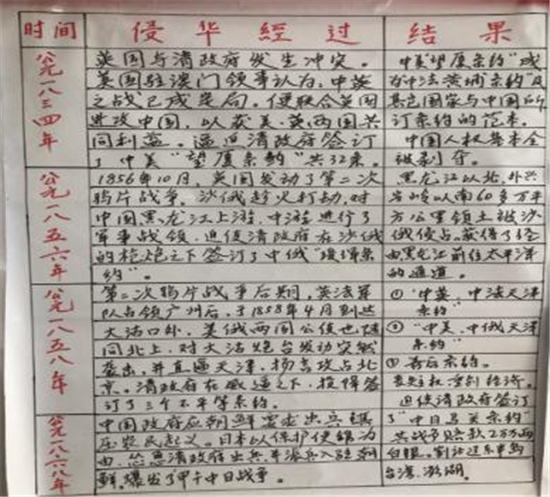 时间 侵华经过 结果
公元一八三四年
英国与清政府发生冲突。
美国驻澳门领事认为:中英
之战已成定局。便联合英国
进攻中国,以获美、英两国共
同利益。逼迫清政府签订
了中美“望厦条约”共32条。
中美望厦条约“成
为中法黄埔条约”及
其它国家与中国所
订条约的范本。
中国人权基本全
被剥夺。
公元一八五六年
1856年10月,英国发动了第二次
鸦片战争,沙俄趁火打劫,对
中国黑龙江上游、中游进行了
军事战领,迫使清政府在沙俄
的枪炮之下签订了中俄“瑷珲条
约”。
黑龙江以北,外兴
安岭以南60多万平
方公里领土被沙
俄侵占。获得了经
由黑龙江前往太平洋
的通道。
公元一八五八年
第二次鸦片战争后期,英法军
队占领广州后,于1858年4月到达
大沽口外,美俄两国公使也
同北上,对大沽炮台发动突然
袭击,并直逼天津,扬言攻占北
京。清政府在威逼之下,被得签
订了三个不平等条约。
①“中英、中法天津
条约”
②“中美、中俄天津
条约”
③善后条约。
公元一八六八年
中国政府应朝鲜要求出兵镇
压农民起义。日本以保护使馆为
由,怂恿清政府出兵并派兵入驻朝
鲜,爆发了甲午中日战争。
迫使清政府签订
了“中日马关条约”
共战争赔款2万万两
白银。割让辽东半岛
台湾、澎湖。